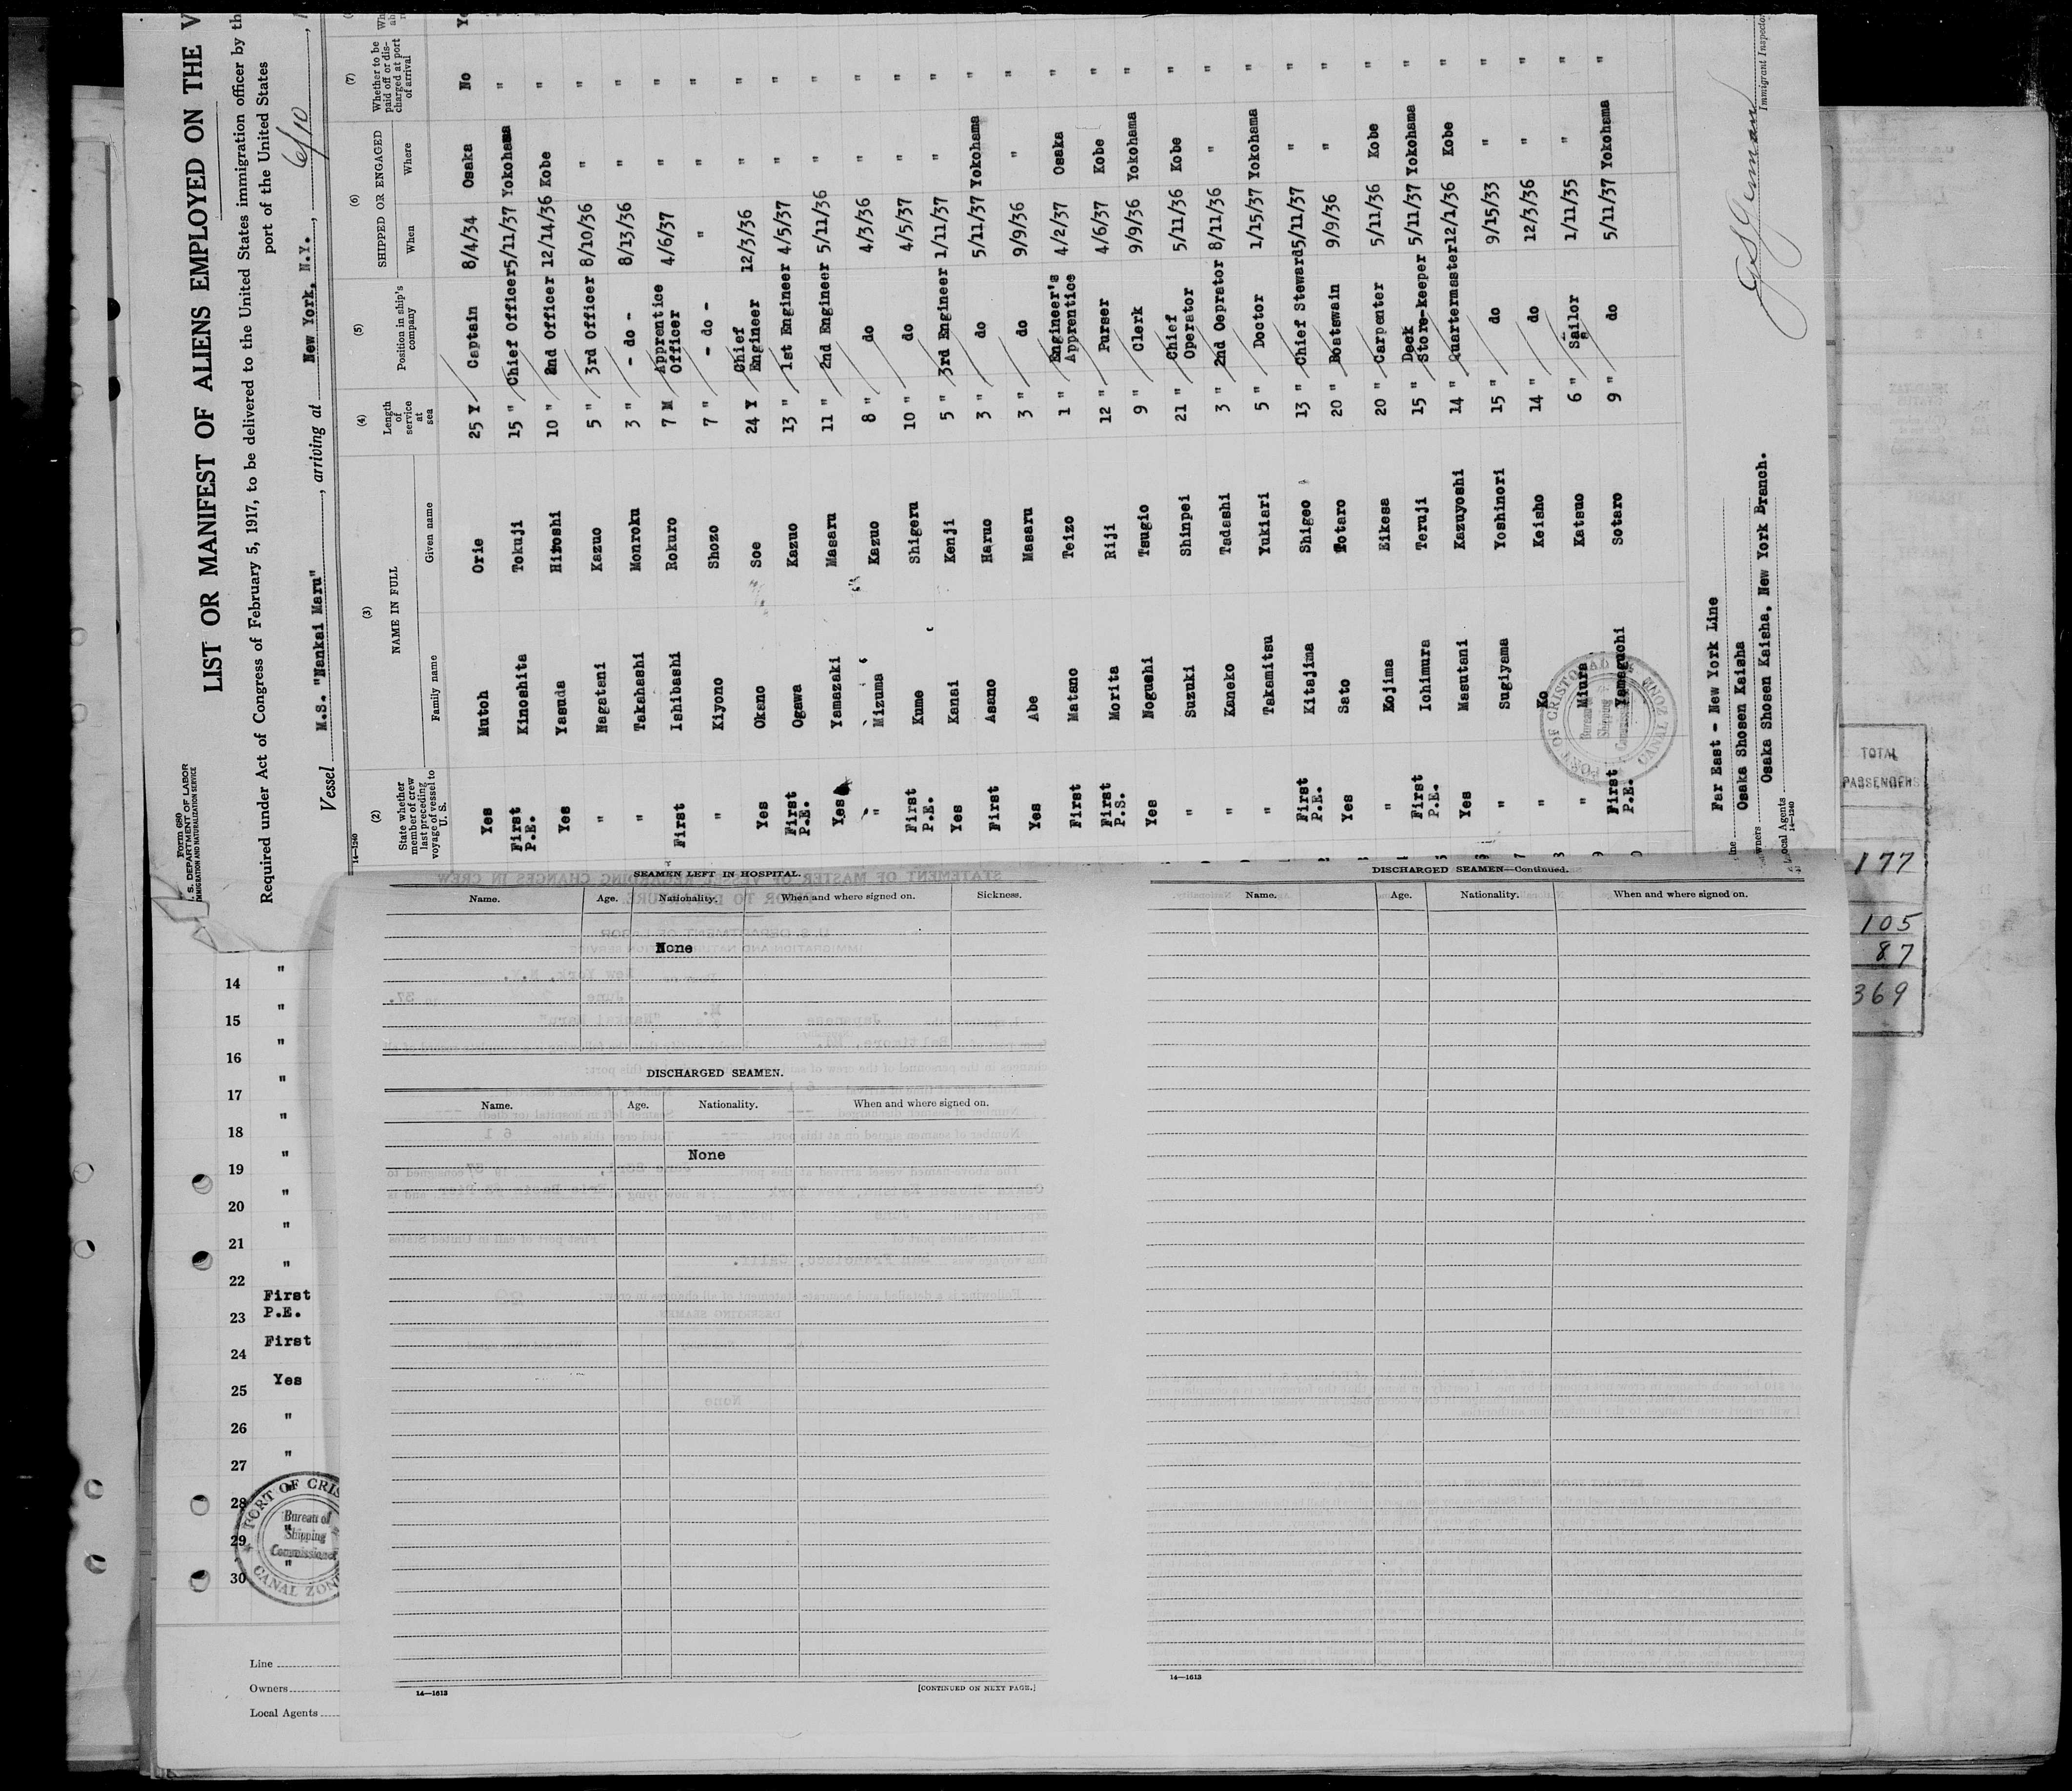 Form 680
U. S. DEPARTMENT OF LABOR
IMMIGRATION AND NATURALIZATION SERVICE
LIST OR MANIFEST OF ALIENS EMPLOYED ON THE V
Required under Act of Congress of February 5, 1917, to be delivered to the United States immigration officer by th
port of the United States
Vessel M.S. "Nankai Maru", arriving at New York, N.Y., 6/10,
14—1240
(2) (3) (4) (5) (6) (7)
State whether member of crew last preceding voyage of vessel to U. S.
NAME IN FULL
Family name Given name
Length of service at sea
Position in ship's company
SHIPPED OR ENGAGED
When Where
Whether to be paid off or discharged at port of arrival
Yes Mutoh Orie 25 Y Captain 8/4/34 Osaka No Ye
First P.E. Kinoshita Tokuji 15 " Chief Officer 5/11/37 Yokohama "
Yes Yasuda Hiroshi 10 " 2nd Officer 12/14/36 Kobe "
" Nagatani Kazuo 5 " 3rd Officer 8/10/36 " "
" Takahashi Monroku 3 " - do - 8/13/36 " "
First Ishibashi Rokuro 7 M Apprentice Officer 4/6/37 " "
" Kiyono Shozo 7 " - do - " " "
Yes Okano Soe 24 Y Chief Engineer 12/3/36 " "
First P.E. Ogawa Kazuo 13 " 1st Engineer 4/5/37 " "
Yes Yamazaki Masaru 11 " 2nd Engineer 5/11/36 " "
" Mizuma Kazuo 8 " do 4/3/36 " "
First P.E. Kume Shigeru 10 " do 4/5/37 " "
Yes Kanai Kenji 5 " 3rd Engineer 1/11/37 " "
First Asano Haruo 3 " do 5/11/37 Yokohama "
Yes Abe Masaru 3 " do 9/9/36 " "
First Matano Teizo 1 " Engineer's Apprentice 4/2/37 Osaka "
First P.S. Morita Riji 12 " Purser 4/6/37 Kobe "
Yes Noguchi Tsugio 9 " Clerk 9/9/36 Yokohama "
" Suzuki Shinpei 21 " Chief Operator 5/11/36 Kobe "
" Kaneko Tadashi 3 " 2nd Oeprator 8/11/36 " "
" Takamitsu Yukiari 5 " Doctor 1/15/37 Yokohama "
First P.E. Kitajima Shigeo 13 " Chief Steward 5/11/37 " "
Yes Sato Totaro 20 " Boatswain 9/9/36 " "
" Kojima Eikesa 20 " Carpenter 5/11/36 Kobe "
First P.E. Iohimura Teruji 15 " Deck Store-keeper 5/11/37 Yokohama "
Yes Masutani Kazuyoshi 14 " Quartermaster 12/1/36 Kobe "
" Sugiyama Yoshinori 15 " do 9/15/33 " "
" Ko Keisho 14 " do 12/3/36 " "
" Miura Katsuo 6 " Sailor 1/11/35 " "
First P.E. Yamaguchi Sotaro 9 " do 5/11/37 Yokohama "
PORT OF CRISTOBAL
Bureau of
Shipping
Commissioner
CANAL ZONE
Line Far East - New York Line
Owners Osaka Shosen Kaisha
Local Agents Osaka Shosen Kaisha, New York Branch.
14—1240
Immigrant Inspector
14 "
15 "
16 "
17 "
18 "
19 "
20 "
21 "
22 "
23 First P.E.
24 First
25 Yes
26 "
27 "
28 "
29 "
30 "
PORT OF CRIS
Bureau of
Shipping
Commissioner
CANAL ZONE
Line
Owners
Local Agents
SEAMEN LEFT IN HOSPITAL.
Name. Age. Nationality. When and where signed on. Sickness.
None
DISCHARGED SEAMEN.
Name. Age. Nationality. When and where signed on.
None
14—1613
[CONTINUED ON NEXT PAGE.]
DISCHARGED SEAMEN—Continued.
Name. Age. Nationality. When and where signed on.
14—1613
TOTAL
PASSENGERS
177
105
87
369